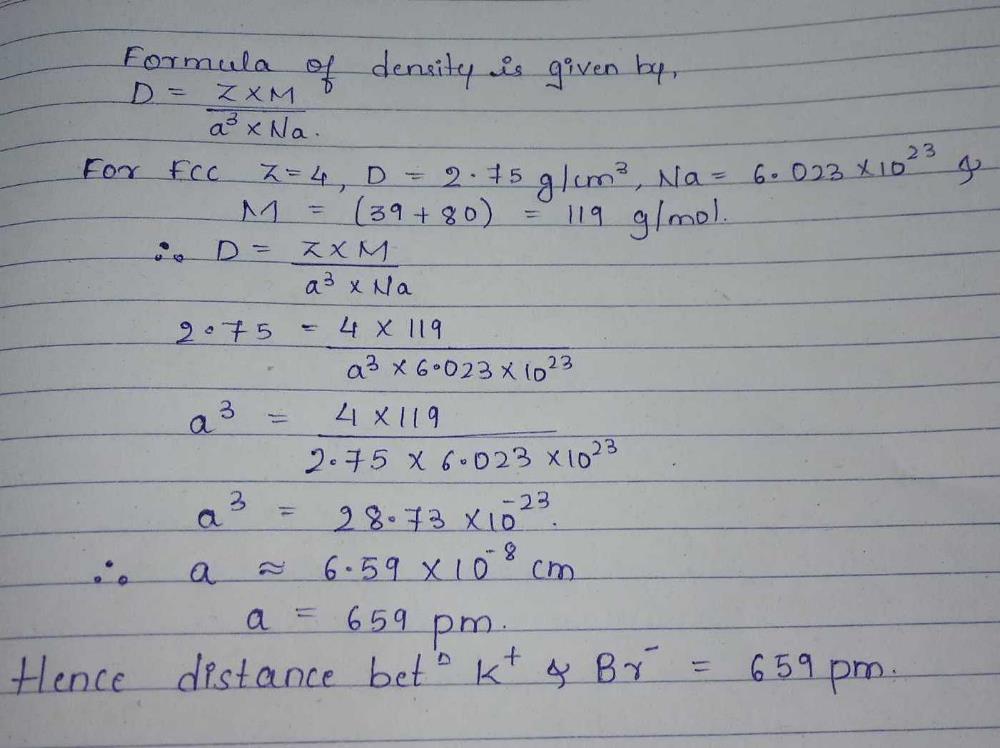 Formula of density is given by,
D = Z×M
a³ × Na.
For Fcc Z=4, D = 2.75 g/cm³, Na = 6.023 ×10²³ &
M = (39+80) = 119 g/mol.
∴ D = Z×M
a³ × Na
2.75 = 4 × 119
a³ × 6.023 × 10²³
a³ = 4 × 119
2.75 × 6.023 ×10²³
a³ = 28.73 ×10⁻²³.
∴ a ≈ 6.59 ×10⁻⁸ cm
a = 659 pm.
Hence distance betⁿ K⁺ & Br⁻ = 659 pm.